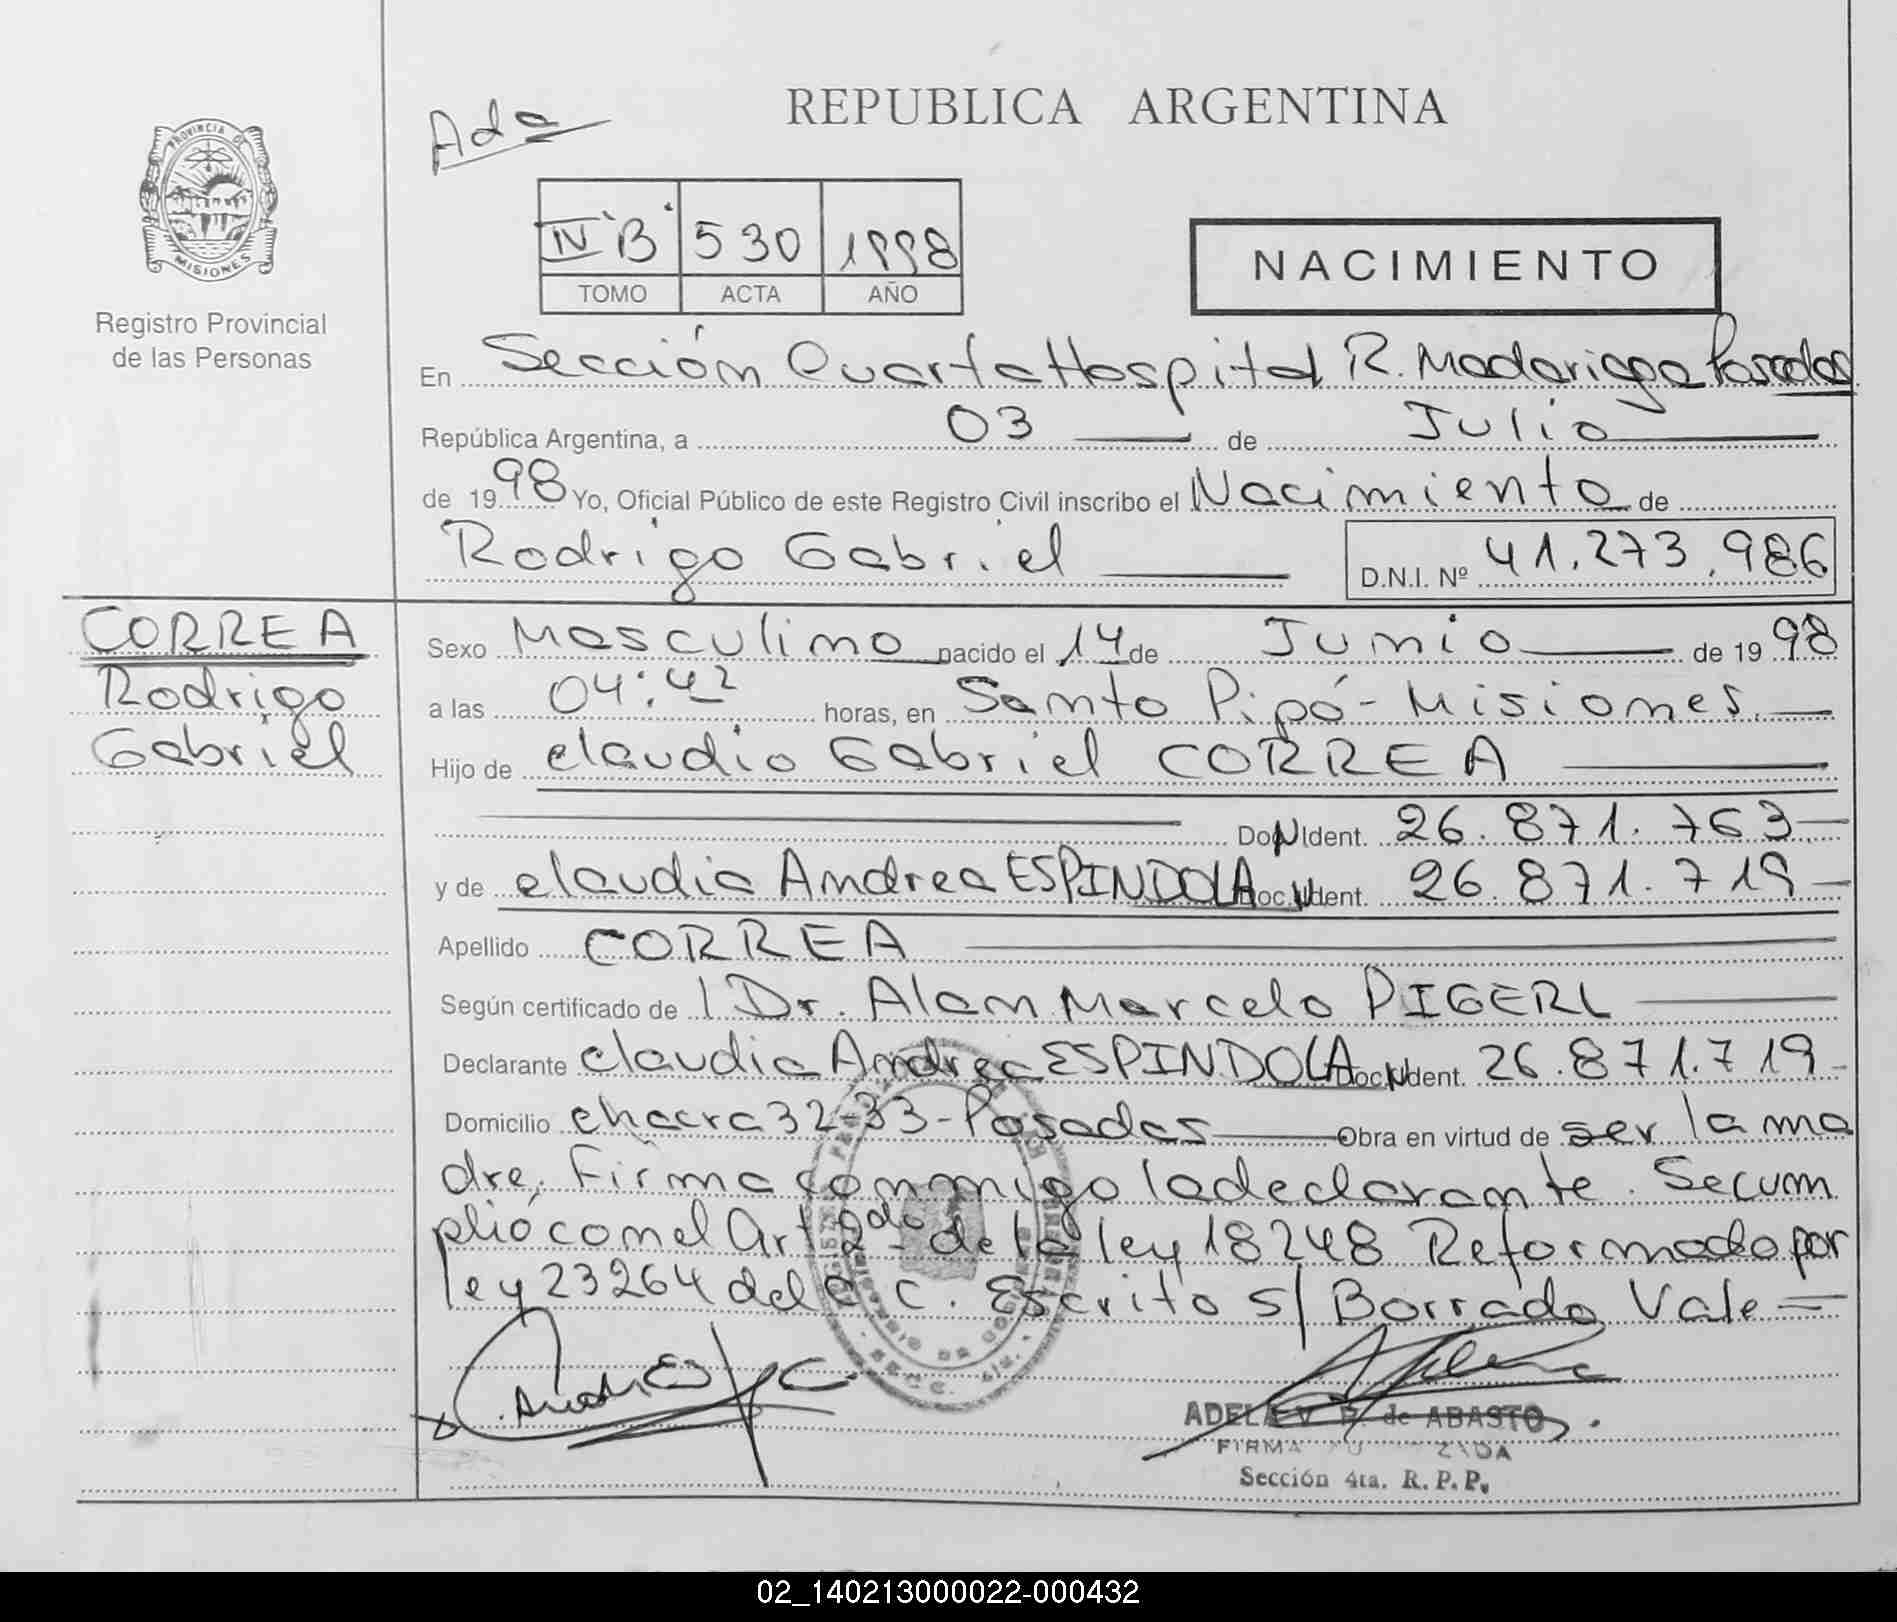 REPUBLICA ARGENTINA
Ada
PROVINCIA DE
MISIONES
Registro Provincial
de las Personas
IV "B" 530 1998
TOMO ACTA AÑO
NACIMIENTO
En Sección Cuarta Hospital R. Madariaga Posadas
República Argentina, a 03 de Julio
de 1998 Yo, Oficial Público de este Registro Civil inscribo el Nacimiento de
Rodrigo Gabriel D.N.I. Nº 41.273.986
CORREA
Rodrigo
Gabriel
Sexo Masculino nacido el 14 de Junio de 1998
a las 04:42 horas, en Santo Pipó - Misiones.
Hijo de Claudio Gabriel CORREA
Doc. N Ident. 26.871.763
y de Claudia Andrea ESPINDOLA Doc. N Ident. 26.871.719
Apellido CORREA
Según certificado de l Dr. Alan Marcelo PIGERL
Declarante Claudia Andrea ESPINDOLA Doc. N Ident. 26.871.719
Domicilio Chacra 32-33 - Posadas Obra en virtud de ser la ma
dre, Firma conmigo la declarante. Se cum
plió con el Art 2do de la ley 18248 Reformado por
ley 23264 del C C. Escrito s/ Borrado Vale=
ADELA V. P. de ABASTO
Sección 4ta. R. P. P.
02_140213000022-000432